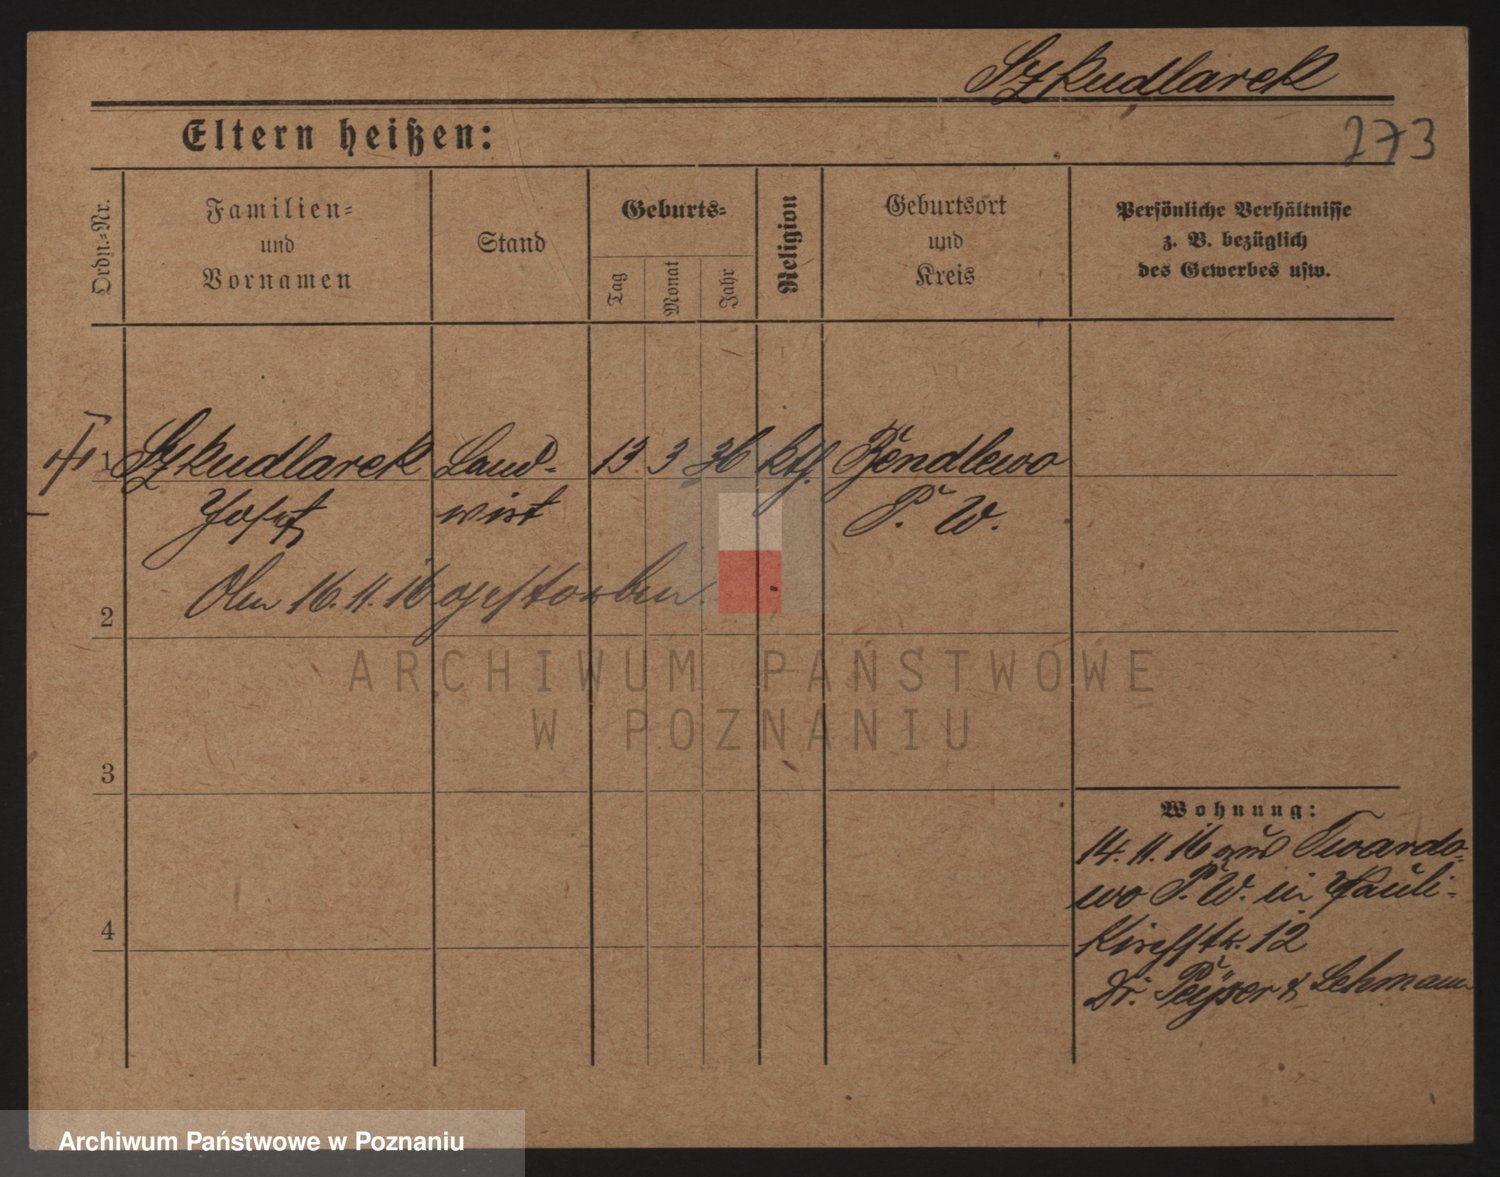 Szkudlarek
Eltern heißen:
273
Ordn.-Nr.
Familien-
und
Vornamen
Stand
Geburts-
Tag
Monat
Jahr
Religion
Geburtsort
und
Kreis
Persönliche Verhältnisse
z. B. bezüglich
des Gewerbes usw.
1 Szkudlarek Land- 13 3 36 kth. Zendlewo
Josef wirt P. W.
2 Am 16.11.16 gestorben.
ARCHIWUM PAŃSTWOWE
W POZNANIU
3
4
Wohnung:
14.11.16 aus Twardo-
wo P. W. in Pauli-
kirchstr. 12
Dr. Peyser & Lehmann
Archiwum Państwowe w Poznaniu